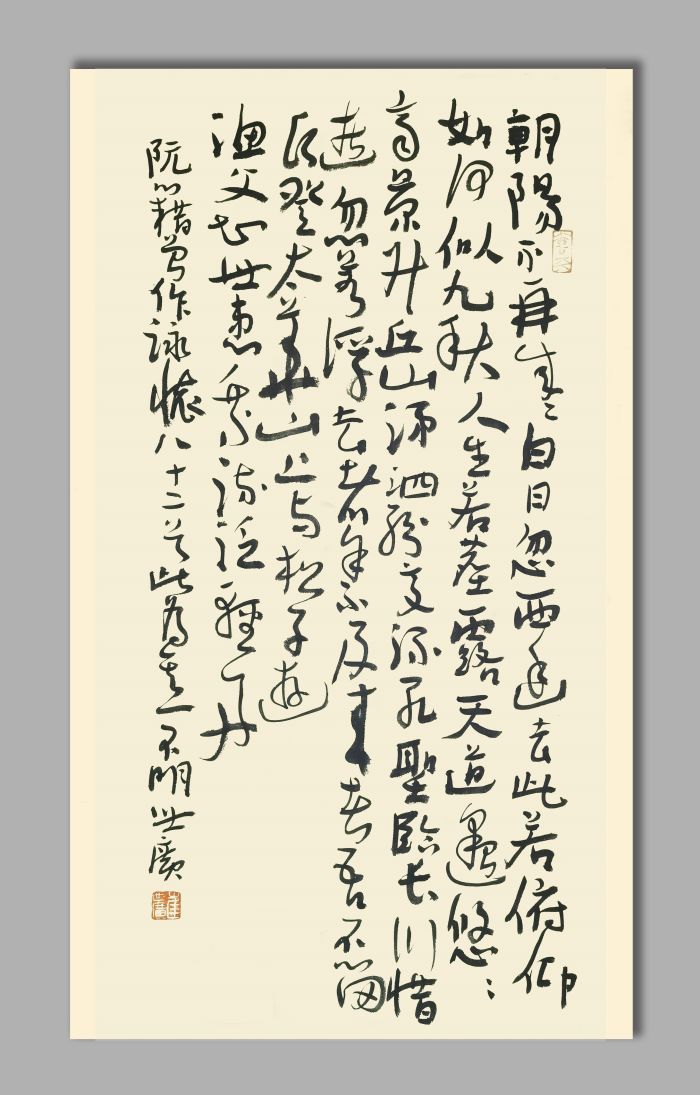 朝陽不再盛白日忽西幽去此若俯仰
如何似九秋人生若塵露天道邈悠〻
齊景升丘山涕泗紛交流孔聖臨长川惜
逝忽若浮去者余不及来者吾不留
願登太華山上与松子遊
渔父知世患乘流泛輕舟
阮籍曾作詠懷八十二首此為其一不明世廣